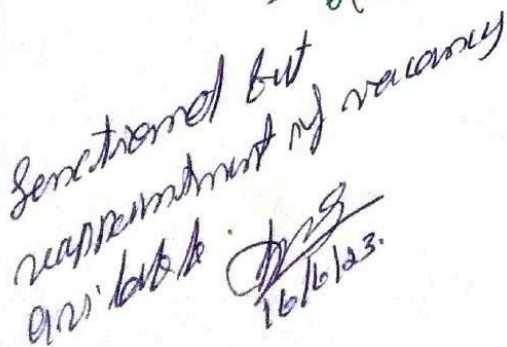 Senctioned but
reappointment if vacancy
available.
16/6/23.